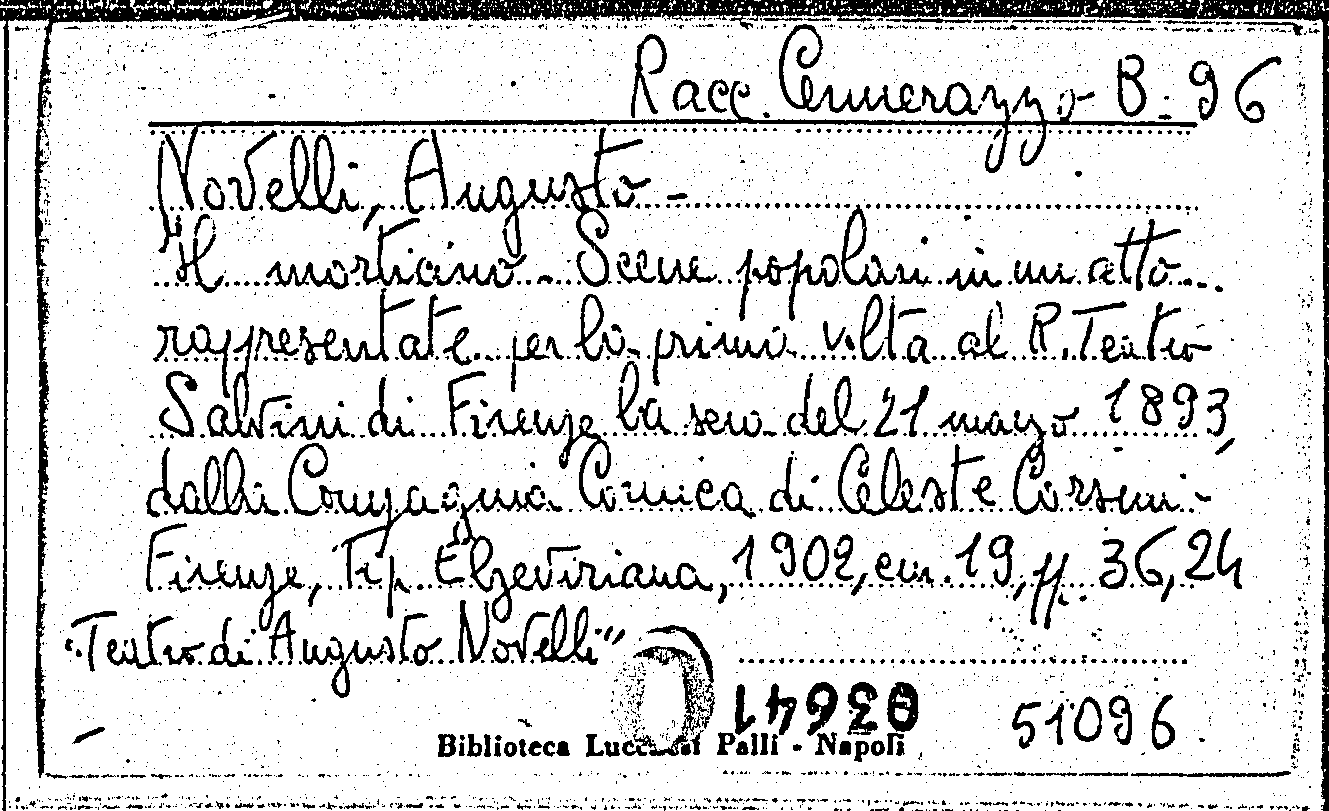 Racc. Cennerazzo - B. 96
Novelli, Augusto -
Il morticino - Scene popolari in un atto
rappresentate per la prima volta al R. Teatro
Salvini di Firenze la sera del 21 marzo 1893,
dalla Compagnia Comica di Celeste Corsini -
Firenze, Tip. Elzeviriana, 1902, cm. 19, pp. 36, 24
"Teatro di Augusto Novelli"
03641
51096
Biblioteca Lucchesi Palli - Napoli